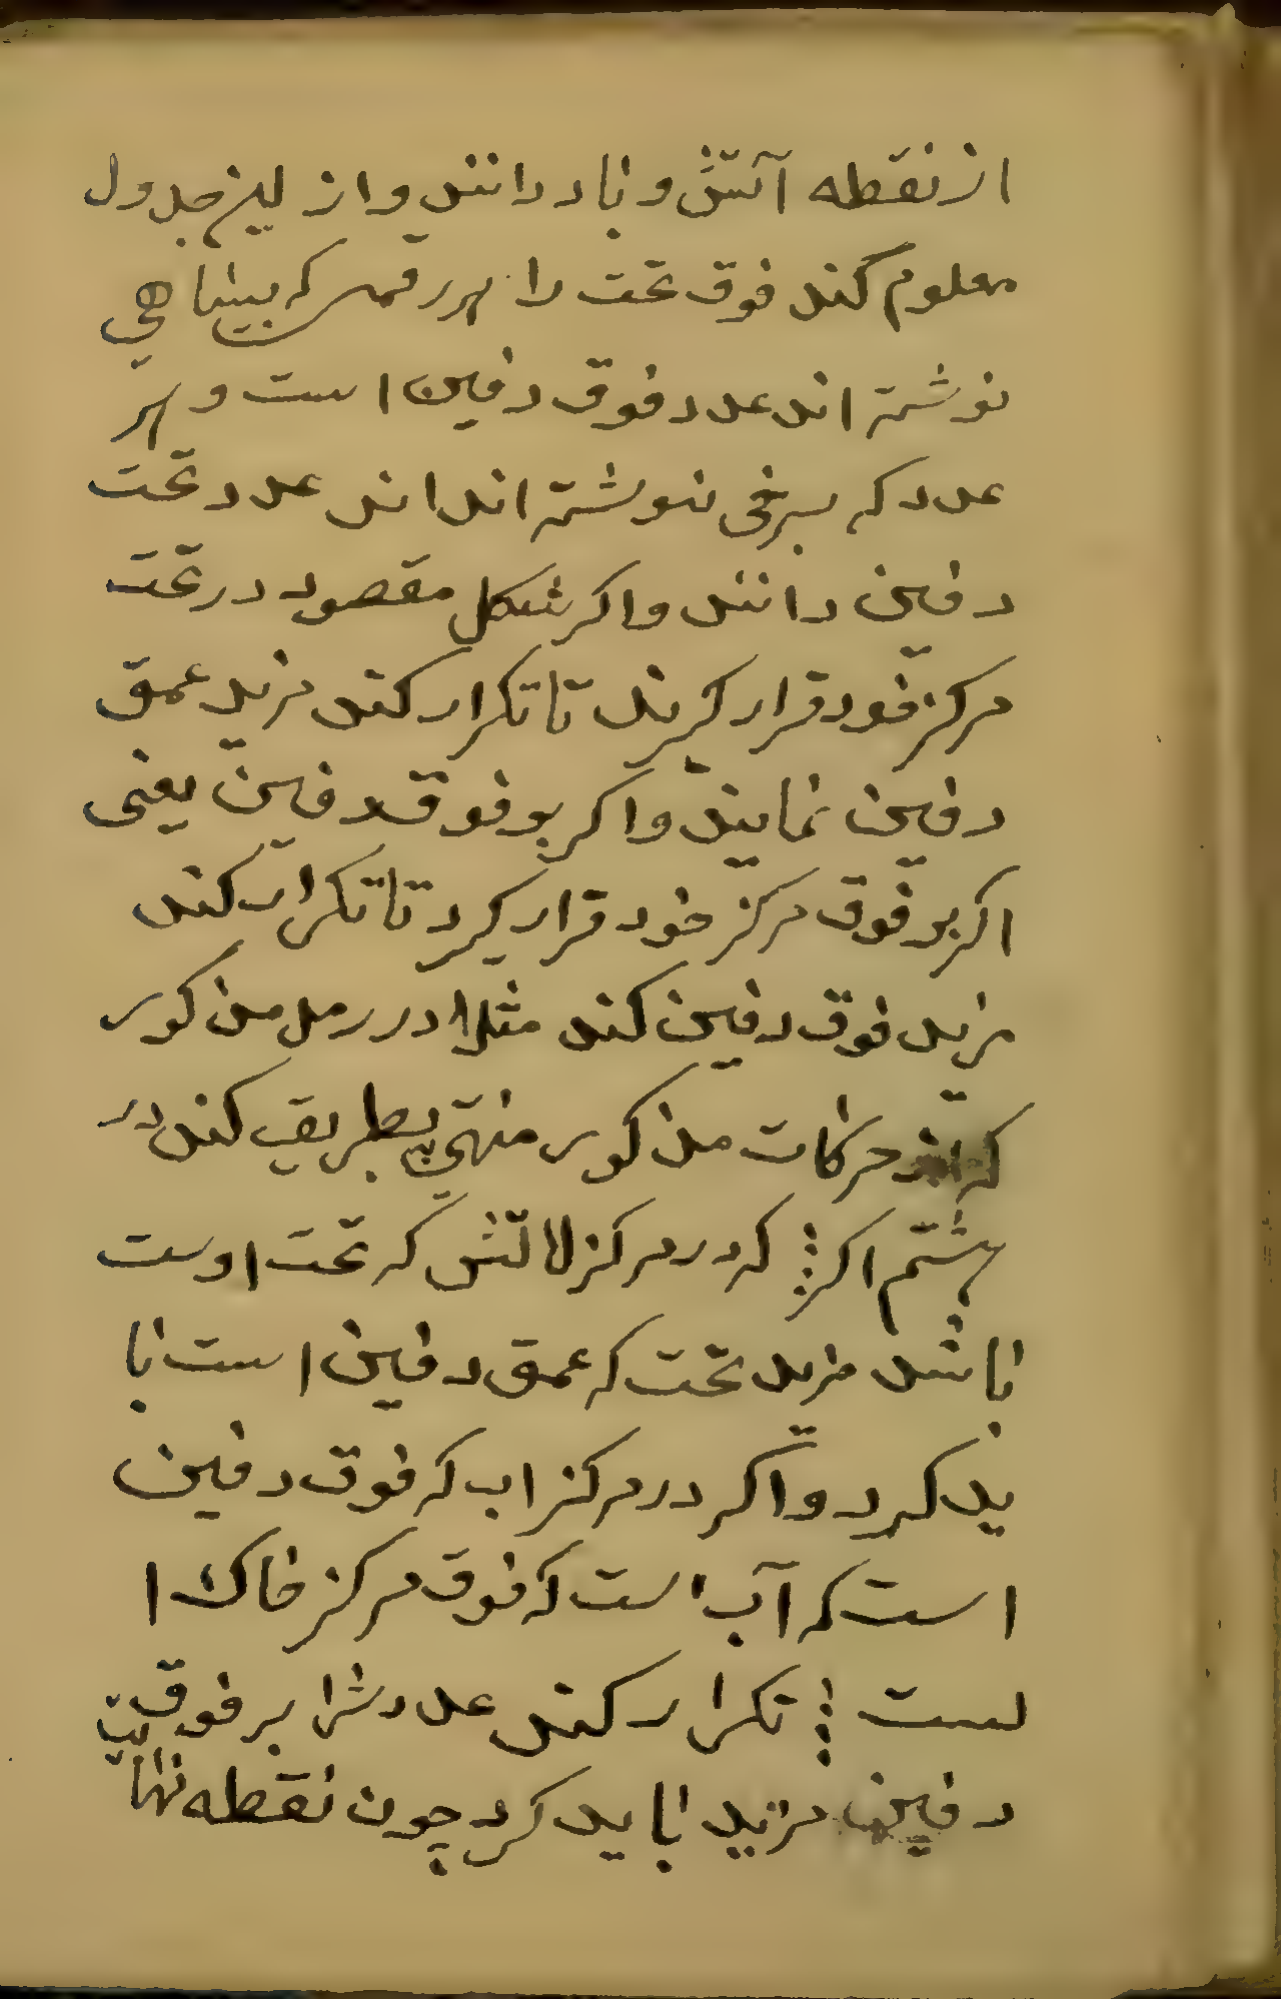 از نقطه آتش و باد دانند و از این جدول
معلوم کند فوق تحت را هر رقمی که بسیاهی
نوشته اند عدد فوق دفین است و هر
عدد که بسرخی نوشته اند اند عدد تحت
دفین دانند و اکر شکل مقصود در تحت
مرکز خود قرار کیرند تا تکرار کند مزید عمق
دفین نمایند و اکر بر فوق دفین یعنی
اکر بر فوق مرکز خود قرار کیرد تا تکرار کند
مزید فوق دفین کند مثلا در رمل مذکور
که حرکات مذکور منتهی بطریق کند در
هشتم اکر ⁝ که در مرکز لاتش که تحت اوست
باشد مزید تحت که عمق دفین است با
ید کرد و اکر در مرکز اب که فوق دفین
است که آب است که فوق مرکز خاک ا
ست ⁝ تکرار کند عددش را بر فوقیت
دفین مزید باید کرد چون نقطه نهایت